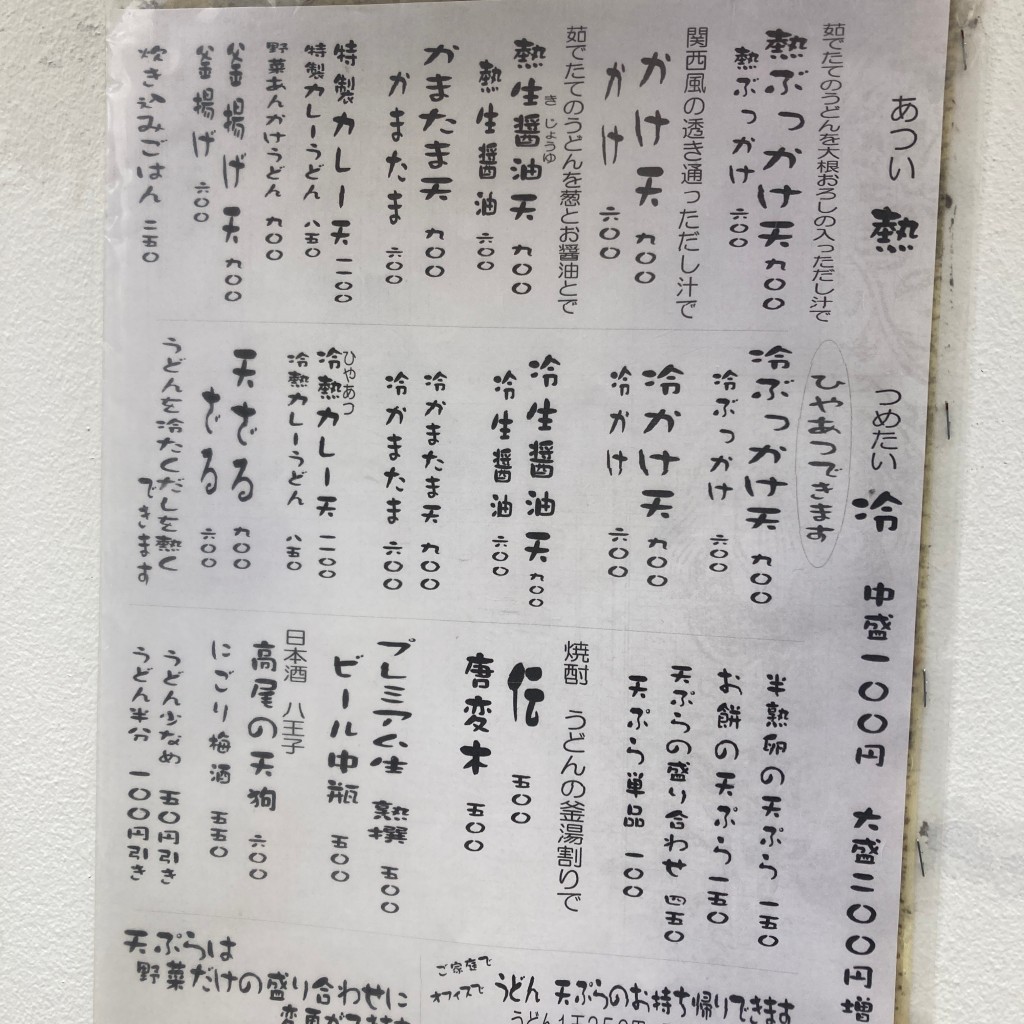 あつい 熱 つめたい 冷 中盛一〇〇円 大盛二〇〇円増
茹でたてのうどんを大根おろしの入っただし汁で
熱ぶっかけ天 九〇〇
熱ぶっかけ 六〇〇
関西風の透き通っただし汁で
かけ天 九〇〇
かけ 六〇〇
茹でたてのうどんを葱とお醤油とで
熱生醤油天 九〇〇
き じょうゆ
熱生醤油 六〇〇
かまたま天 九〇〇
かまたま 六〇〇
特製カレー天 一二〇〇
特製カレーうどん 八五〇
野菜あんかけうどん 九〇〇
釜揚げ天 九〇〇
釜揚げ 六〇〇
炊き込みごはん 二五〇
ひやあつできます
冷ぶっかけ天 九〇〇
冷ぶっかけ 六〇〇
冷かけ天 九〇〇
冷かけ 六〇〇
冷生醤油天 九〇〇
冷生醤油 六〇〇
冷かまたま天 九〇〇
冷かまたま 六〇〇
ひやあつ
冷熱カレー天 一二〇〇
冷熱カレーうどん 八五〇
天ざる 九〇〇
ざる 六〇〇
うどんを冷たくだしを熱く
できます
半熟卵の天ぷら 一五〇
お餅の天ぷら 一五〇
天ぷらの盛り合わせ 四五〇
天ぷら単品 一〇〇
焼酎 うどんの釜湯割りで
伝 五〇〇
唐変木 五〇〇
プレミアム生 熟撰 五〇〇
ビール中瓶 五〇〇
日本酒 八王子
高尾の天狗 六〇〇
にごり梅酒 五五〇
うどん少なめ 五〇円引き
うどん半分 一〇〇円引き
ご家庭で
オフィスで
うどん 天ぷらのお持ち帰りできます
天ぷらは
野菜だけの盛り合わせに